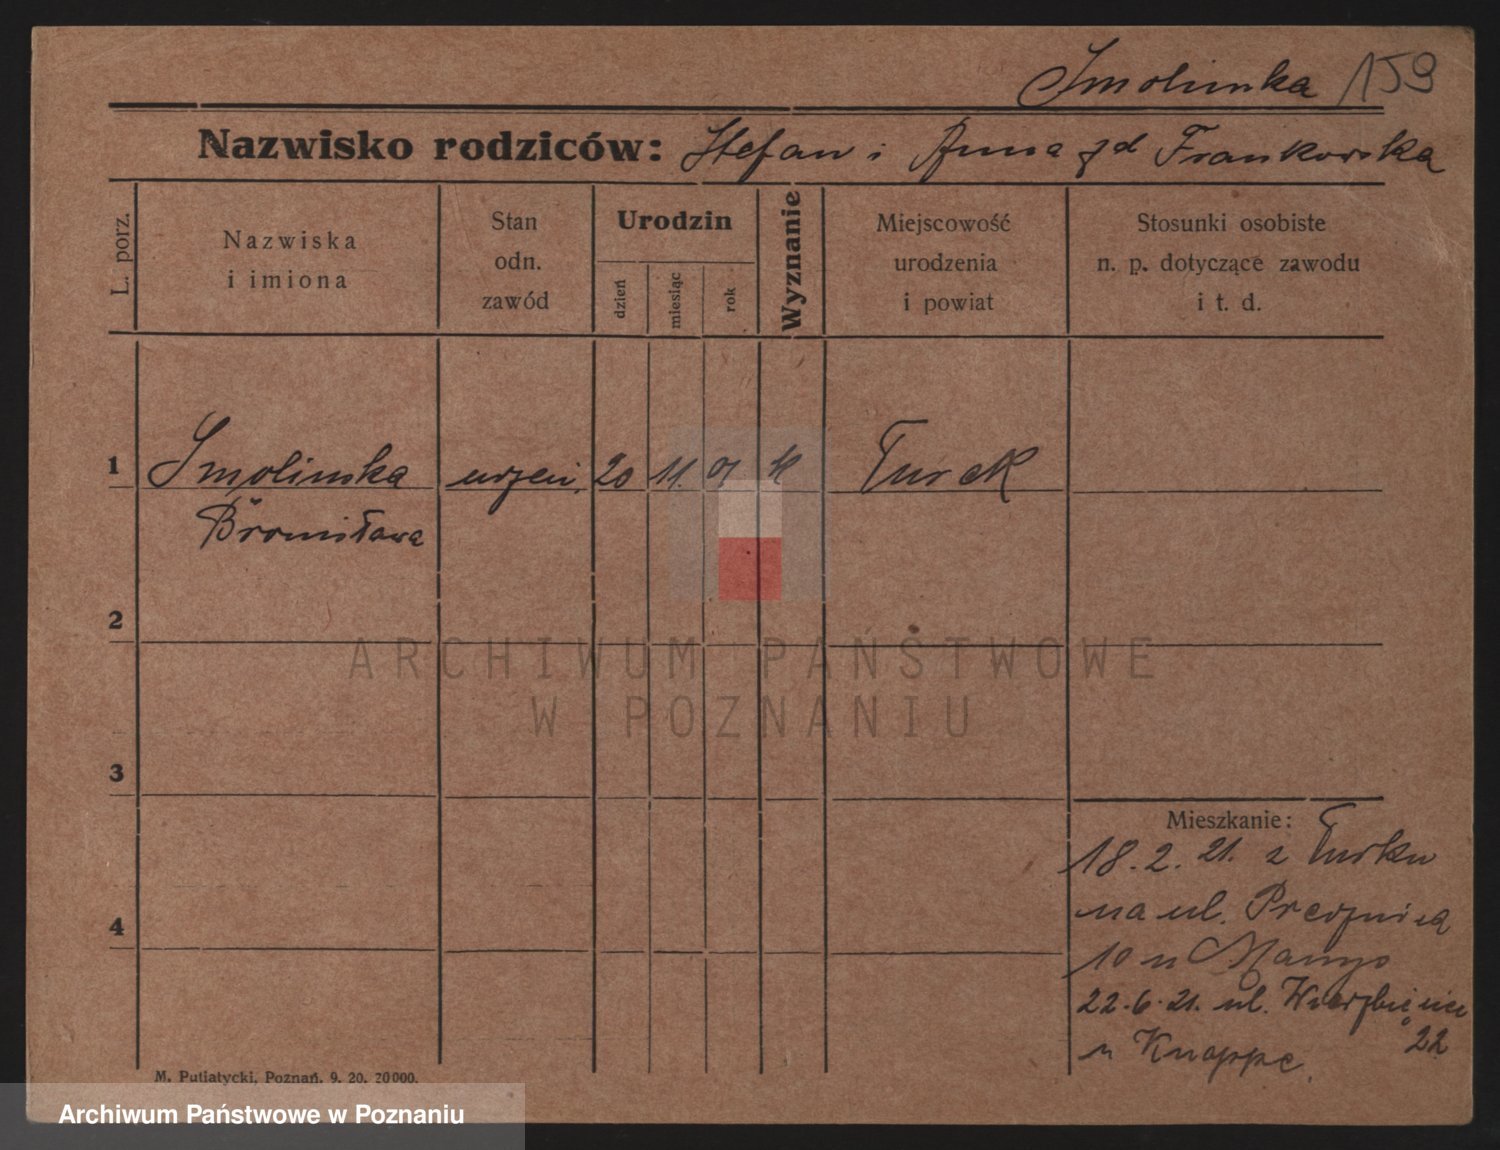 Smolinska 159
Nazwisko rodziców: Stefan i Anna zd Frankowska
L. porz.
Nazwiska
i imiona
Stan
odn.
zawód
Urodzin
dzień
miesiąc
rok
Wyznanie
Miejscowość
urodzenia
i powiat
Stosunki osobiste
n. p. dotyczące zawodu
i t. d.
1 Smolinska uczen. 20 11. 01 k Turek
Bronisława
2
ARCHIWUM PAŃSTWOWE
W POZNANIU
3
Mieszkanie:
18. 2. 21. z Turku
na ul. Przeznica
10 u
22. 6. 21. ul. Wierzbięcice
22
u Knappe
4
M. Putiatycki, Poznań. 9. 20. 20000.
Archiwum Państwowe w Poznaniu